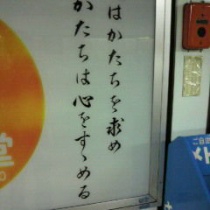 はかたちを求め
かたちは心をすゝめる
堂